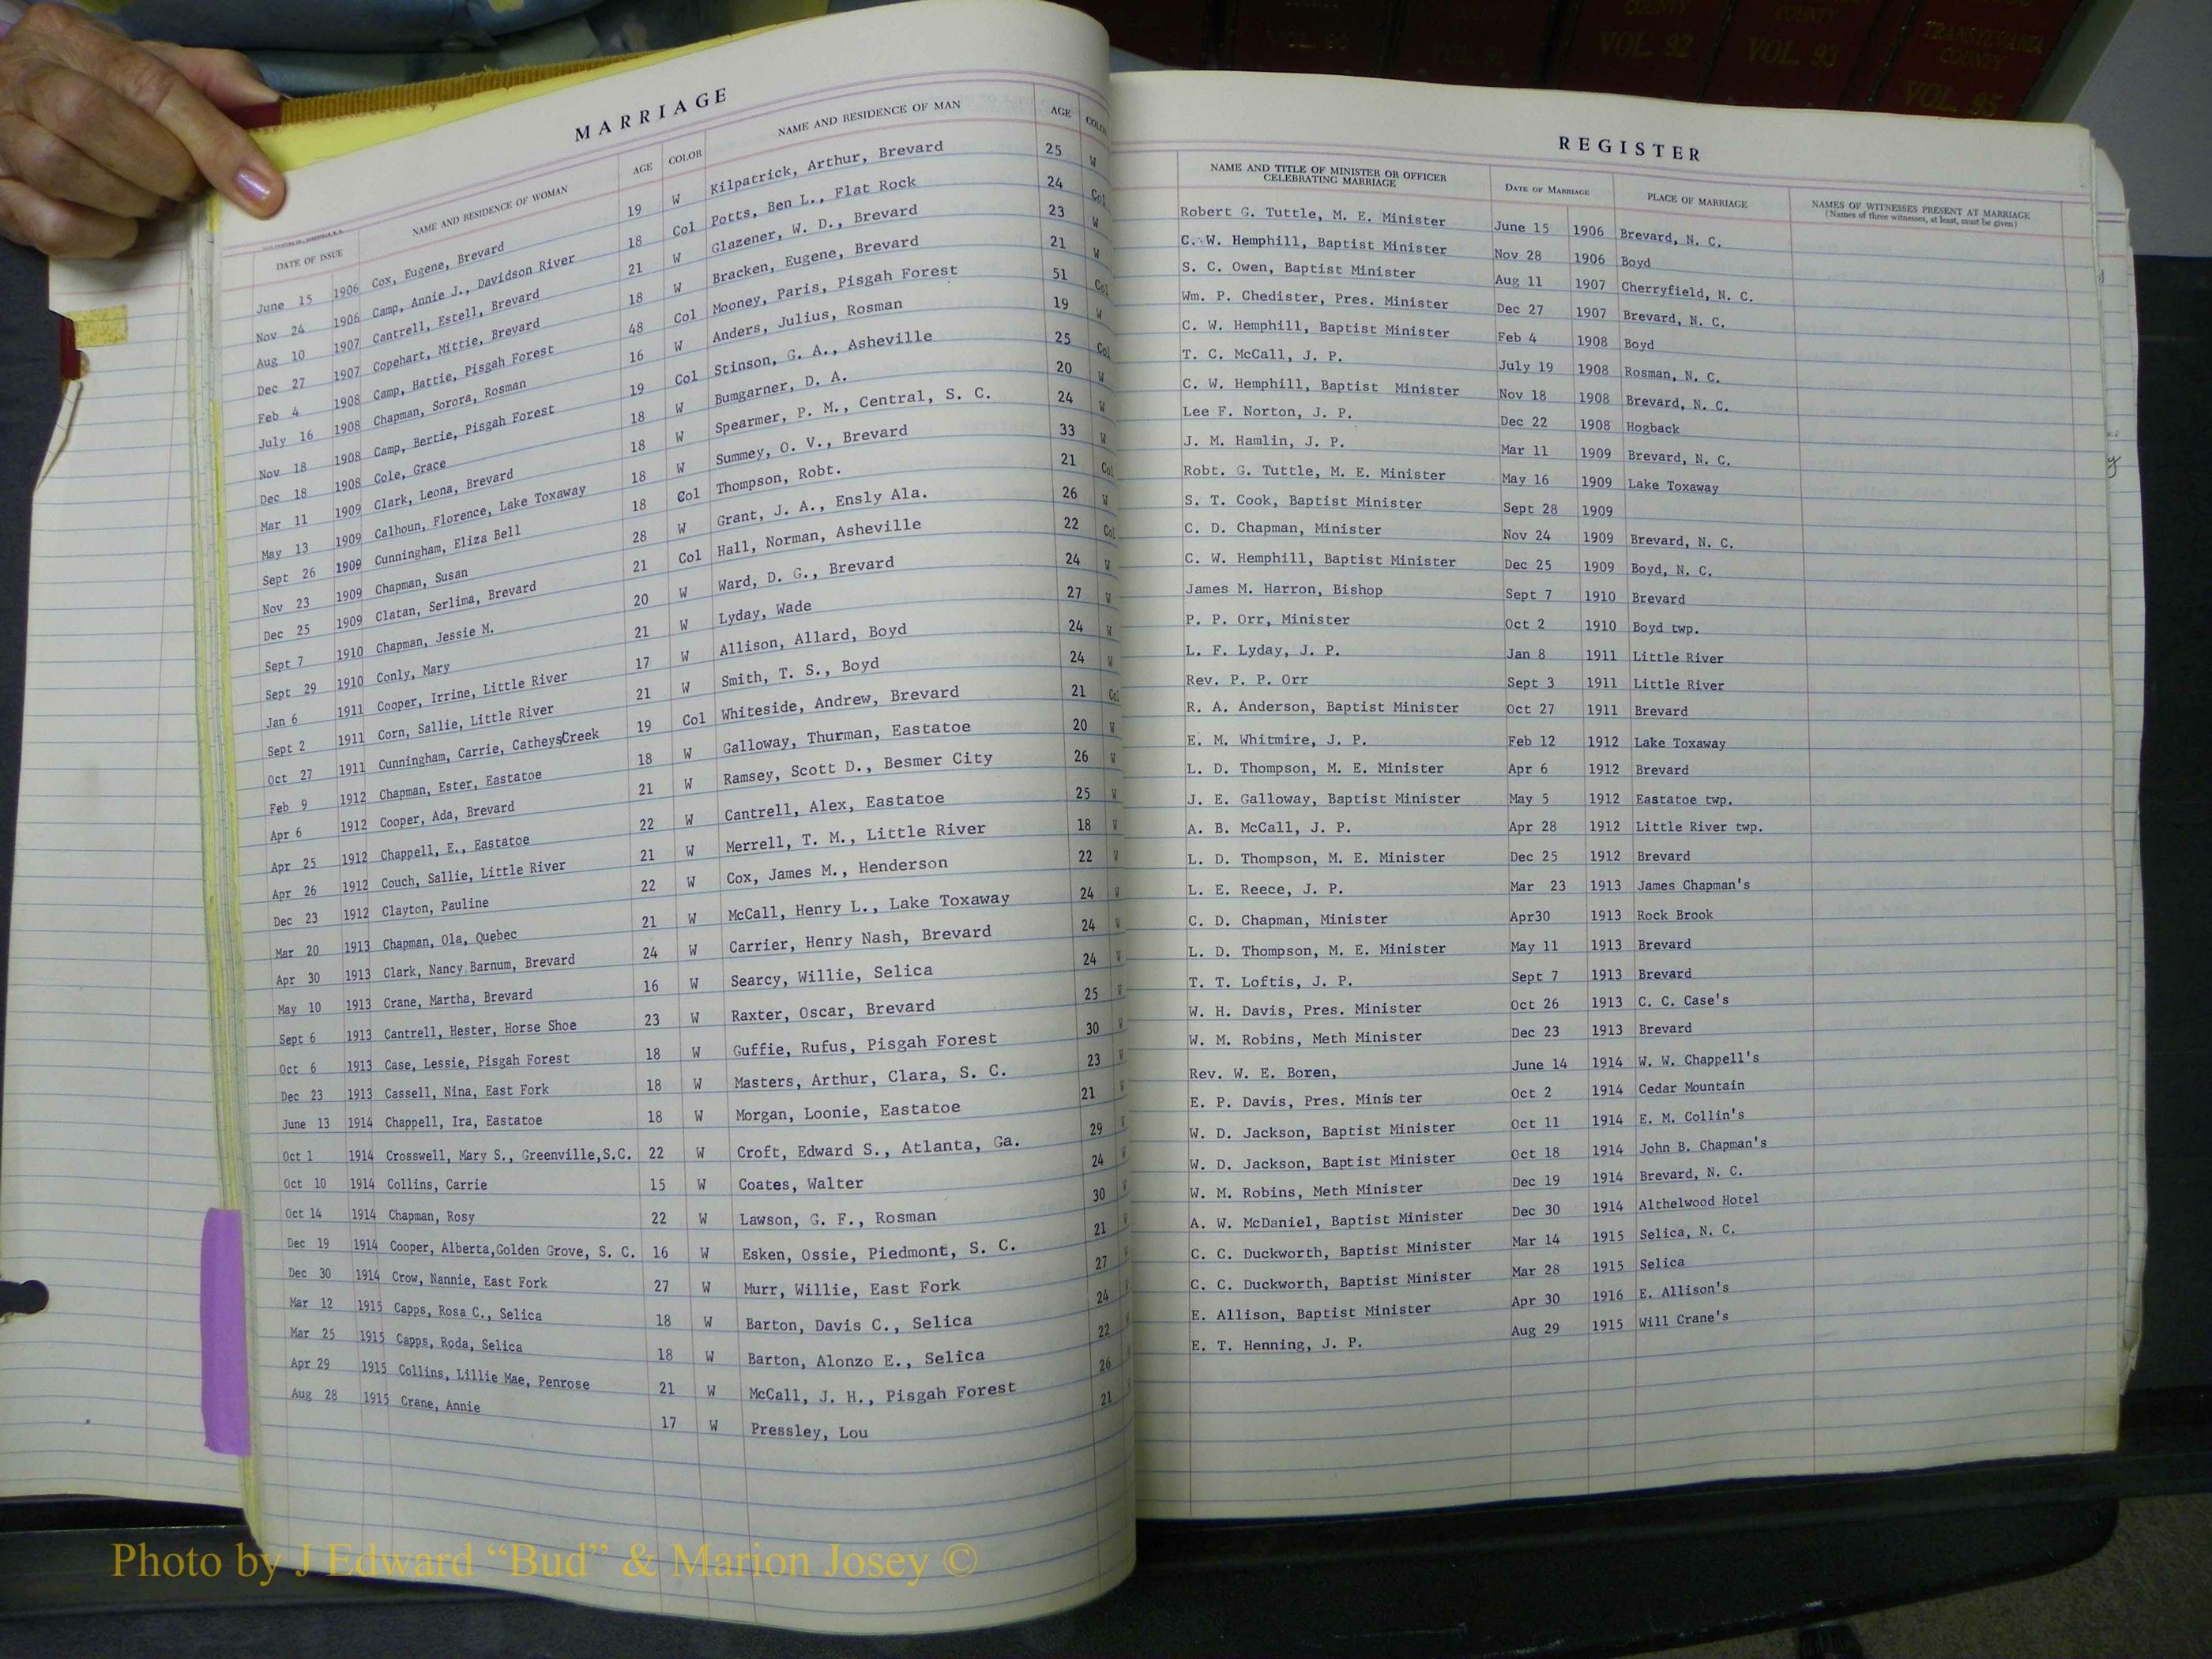 MARRIAGE
DATE OF ISSUE NAME AND RESIDENCE OF WOMAN AGE COLOR NAME AND RESIDENCE OF MAN AGE COLOR
June 15 1906 Cox, Eugene, Brevard 19 W Kilpatrick, Arthur, Brevard 25 W
Nov 24 1906 Camp, Annie J., Davidson River 18 Col Potts, Ben L., Flat Rock 24 Col
Aug 10 1907 Cantrell, Estell, Brevard 21 W Glazener, W. D., Brevard 23 W
Dec 27 1907 Copehart, Mittie, Brevard 18 W Bracken, Eugene, Brevard 21 W
Feb 4 1908 Camp, Hattie, Pisgah Forest 48 Col Mooney, Paris, Pisgah Forest 51 Col
July 16 1908 Chapman, Sorora, Rosman 16 W Anders, Julius, Rosman 19 W
Nov 18 1908 Camp, Bertie, Pisgah Forest 19 Col Stinson, G. A., Asheville 25 Col
Dec 18 1908 Cole, Grace 18 W Bumgarner, D. A. 20 W
Mar 11 1909 Clark, Leona, Brevard 18 W Spearmer, P. M., Central, S. C. 24 W
May 13 1909 Calhoun, Florence, Lake Toxaway 18 W Summey, O. V., Brevard 33 W
Sept 26 1909 Cunningham, Eliza Bell 18 Col Thompson, Robt. 21 Col
Nov 23 1909 Chapman, Susan 28 W Grant, J. A., Ensly Ala. 26 W
Dec 25 1909 Clatan, Serlima, Brevard 21 Col Hall, Norman, Asheville 22 Col
Sept 7 1910 Chapman, Jessie M. 20 W Ward, D. G., Brevard 24 W
Sept 29 1910 Conly, Mary 21 W Lyday, Wade 27 W
Jan 6 1911 Cooper, Irrine, Little River 17 W Allison, Allard, Boyd 24 W
Sept 2 1911 Corn, Sallie, Little River 21 W Smith, T. S., Boyd 24 W
Oct 27 1911 Cunningham, Carrie, CatheysCreek 19 Col Whiteside, Andrew, Brevard 21 Col
Feb 9 1912 Chapman, Ester, Eastatoe 18 W Galloway, Thurman, Eastatoe 20 W
Apr 6 1912 Cooper, Ada, Brevard 21 W Ramsey, Scott D., Besmer City 26 W
Apr 25 1912 Chappell, E., Eastatoe 22 W Cantrell, Alex, Eastatoe 25 W
Apr 26 1912 Couch, Sallie, Little River 21 W Merrell, T. M., Little River 18 W
Dec 23 1912 Clayton, Pauline 22 W Cox, James M., Henderson 22 W
Mar 20 1913 Chapman, Ola, Quebec 21 W McCall, Henry L., Lake Toxaway 24 W
Apr 30 1913 Clark, Nancy Barnum, Brevard 24 W Carrier, Henry Nash, Brevard 24 W
May 10 1913 Crane, Martha, Brevard 16 W Searcy, Willie, Selica 24 W
Sept 6 1913 Cantrell, Hester, Horse Shoe 23 W Raxter, Oscar, Brevard 25 W
Oct 6 1913 Case, Lessie, Pisgah Forest 18 W Guffie, Rufus, Pisgah Forest 30 W
Dec 23 1913 Cassell, Nina, East Fork 18 W Masters, Arthur, Clara, S. C. 23 W
June 13 1914 Chappell, Ira, Eastatoe 18 W Morgan, Loonie, Eastatoe 21 W
Oct 1 1914 Crosswell, Mary S., Greenville,S.C. 22 W Croft, Edward S., Atlanta, Ga. 29 W
Oct 10 1914 Collins, Carrie 15 W Coates, Walter 24 W
Oct 14 1914 Chapman, Rosy 22 W Lawson, G. F., Rosman 30 W
Dec 19 1914 Cooper, Alberta,Golden Grove, S. C. 16 W Esken, Ossie, Piedmont, S. C. 21 W
Dec 30 1914 Crow, Nannie, East Fork 27 W Murr, Willie, East Fork 27
Mar 12 1915 Capps, Rosa C., Selica 18 W Barton, Davis C., Selica 24
Mar 25 1915 Capps, Roda, Selica 18 W Barton, Alonzo E., Selica 22
Apr 29 1915 Collins, Lillie Mae, Penrose 21 W McCall, J. H., Pisgah Forest 26
Aug 28 1915 Crane, Annie 17 W Pressley, Lou 21
REGISTER
NAME AND TITLE OF MINISTER OR OFFICER CELEBRATING MARRIAGE DATE OF MARRIAGE PLACE OF MARRIAGE NAMES OF WITNESSES PRESENT AT MARRIAGE
(Names of three witnesses, at least, must be given)
Robert G. Tuttle, M. E. Minister June 15 1906 Brevard, N. C.
C. W. Hemphill, Baptist Minister Nov 28 1906 Boyd
S. C. Owen, Baptist Minister Aug 11 1907 Cherryfield, N. C.
Wm. P. Chedister, Pres. Minister Dec 27 1907 Brevard, N. C.
C. W. Hemphill, Baptist Minister Feb 4 1908 Boyd
T. C. McCall, J. P. July 19 1908 Rosman, N. C.
C. W. Hemphill, Baptist Minister Nov 18 1908 Brevard, N. C.
Lee F. Norton, J. P. Dec 22 1908 Hogback
J. M. Hamlin, J. P. Mar 11 1909 Brevard, N. C.
Robt. G. Tuttle, M. E. Minister May 16 1909 Lake Toxaway
S. T. Cook, Baptist Minister Sept 28 1909
C. D. Chapman, Minister Nov 24 1909 Brevard, N. C.
C. W. Hemphill, Baptist Minister Dec 25 1909 Boyd, N. C.
James M. Harron, Bishop Sept 7 1910 Brevard
P. P. Orr, Minister Oct 2 1910 Boyd twp.
L. F. Lyday, J. P. Jan 8 1911 Little River
Rev. P. P. Orr Sept 3 1911 Little River
R. A. Anderson, Baptist Minister Oct 27 1911 Brevard
E. M. Whitmire, J. P. Feb 12 1912 Lake Toxaway
L. D. Thompson, M. E. Minister Apr 6 1912 Brevard
J. E. Galloway, Baptist Minister May 5 1912 Eastatoe twp.
A. B. McCall, J. P. Apr 28 1912 Little River twp.
L. D. Thompson, M. E. Minister Dec 25 1912 Brevard
L. E. Reece, J. P. Mar 23 1913 James Chapman's
C. D. Chapman, Minister Apr30 1913 Rock Brook
L. D. Thompson, M. E. Minister May 11 1913 Brevard
T. T. Loftis, J. P. Sept 7 1913 Brevard
W. H. Davis, Pres. Minister Oct 26 1913 C. C. Case's
W. M. Robins, Meth Minister Dec 23 1913 Brevard
Rev. W. E. Boren, June 14 1914 W. W. Chappell's
E. P. Davis, Pres. Minister Oct 2 1914 Cedar Mountain
W. D. Jackson, Baptist Minister Oct 11 1914 E. M. Collin's
W. D. Jackson, Baptist Minister Oct 18 1914 John B. Chapman's
W. M. Robins, Meth Minister Dec 19 1914 Brevard, N. C.
A. W. McDaniel, Baptist Minister Dec 30 1914 Althelwood Hotel
C. C. Duckworth, Baptist Minister Mar 14 1915 Selica, N. C.
C. C. Duckworth, Baptist Minister Mar 28 1915 Selica
E. Allison, Baptist Minister Apr 30 1916 E. Allison's
E. T. Henning, J. P. Aug 29 1915 Will Crane's
COUNTY
VOL. 92
COUNTY
VOL. 93
TRANSYLVANIA
COUNTY
VOL. 95
Photo by J Edward “Bud” & Marion Josey ©